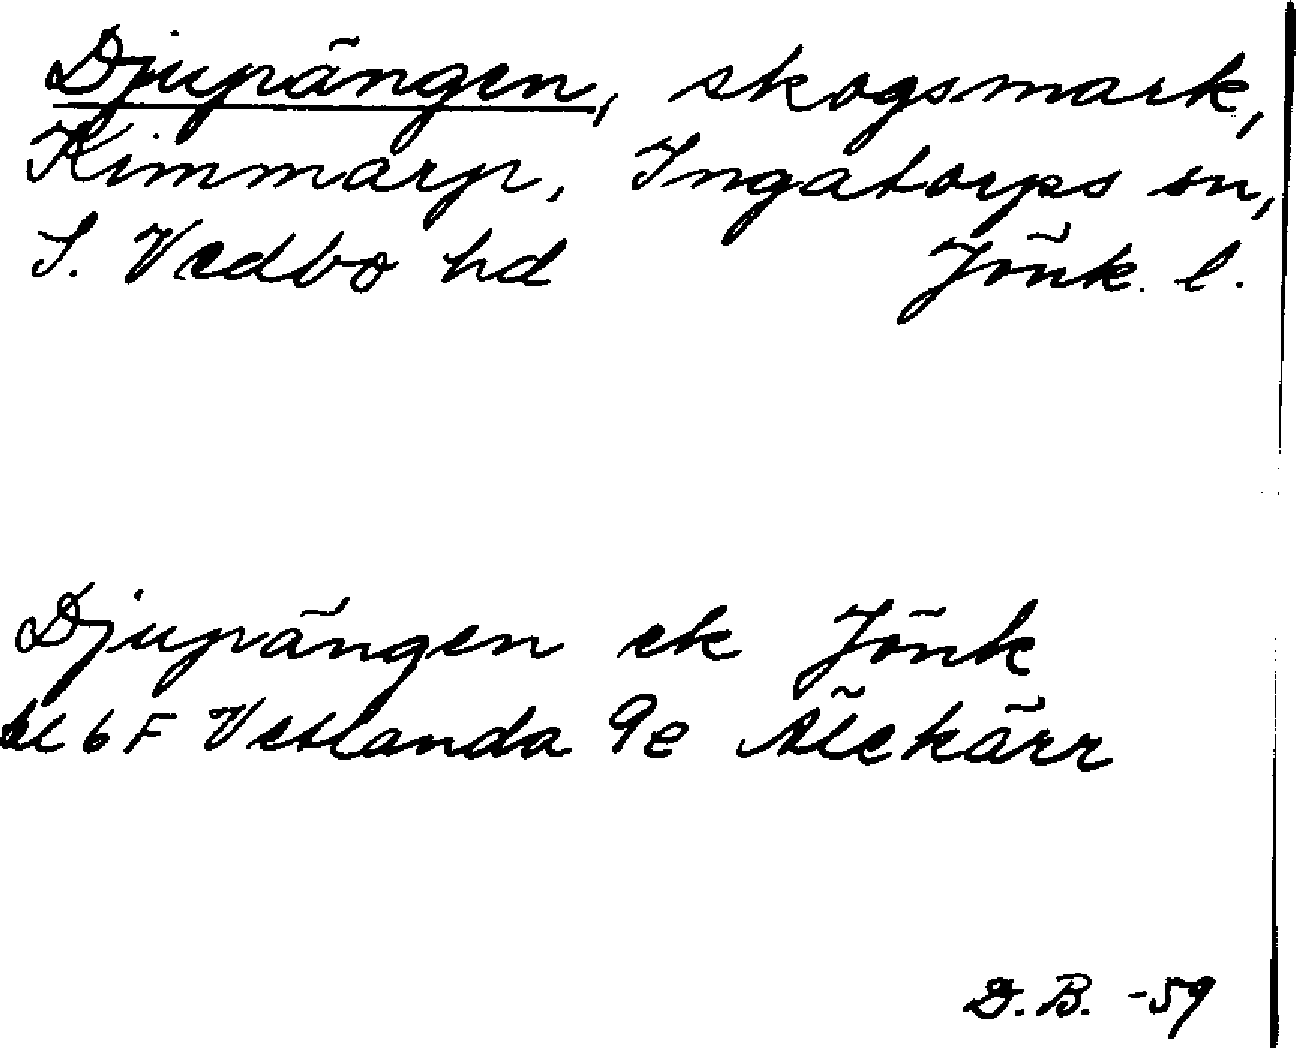 Djupängen, skogsmark,
Kimmarp, Ingatorps sn,
S. Vedbo hd Jönk. l.
Djupängen ek Jönk
bl 6 F Vetlanda 9e Älekärr
D.B. -59